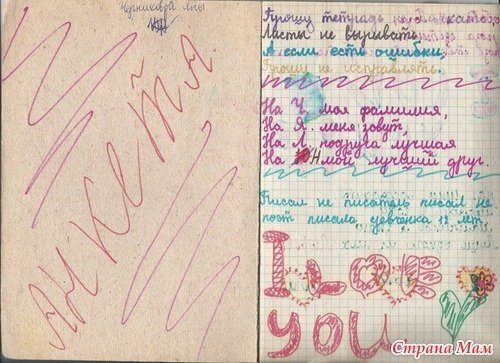 Черниковой Яны
АНКЕТА
Прошу тетрадь не пачкать
Листы не вырывать
А если есть ошибки,
Прошу не исправлять.
На Ч. моя фамилия,
На Я. меня зовут,
На Л. подруга лучшая
На Н мой лучший друг.
Писал не писатель писал не
поэт писала девчёнка 12 лет.
I LOVE
YOU
Страна Мам